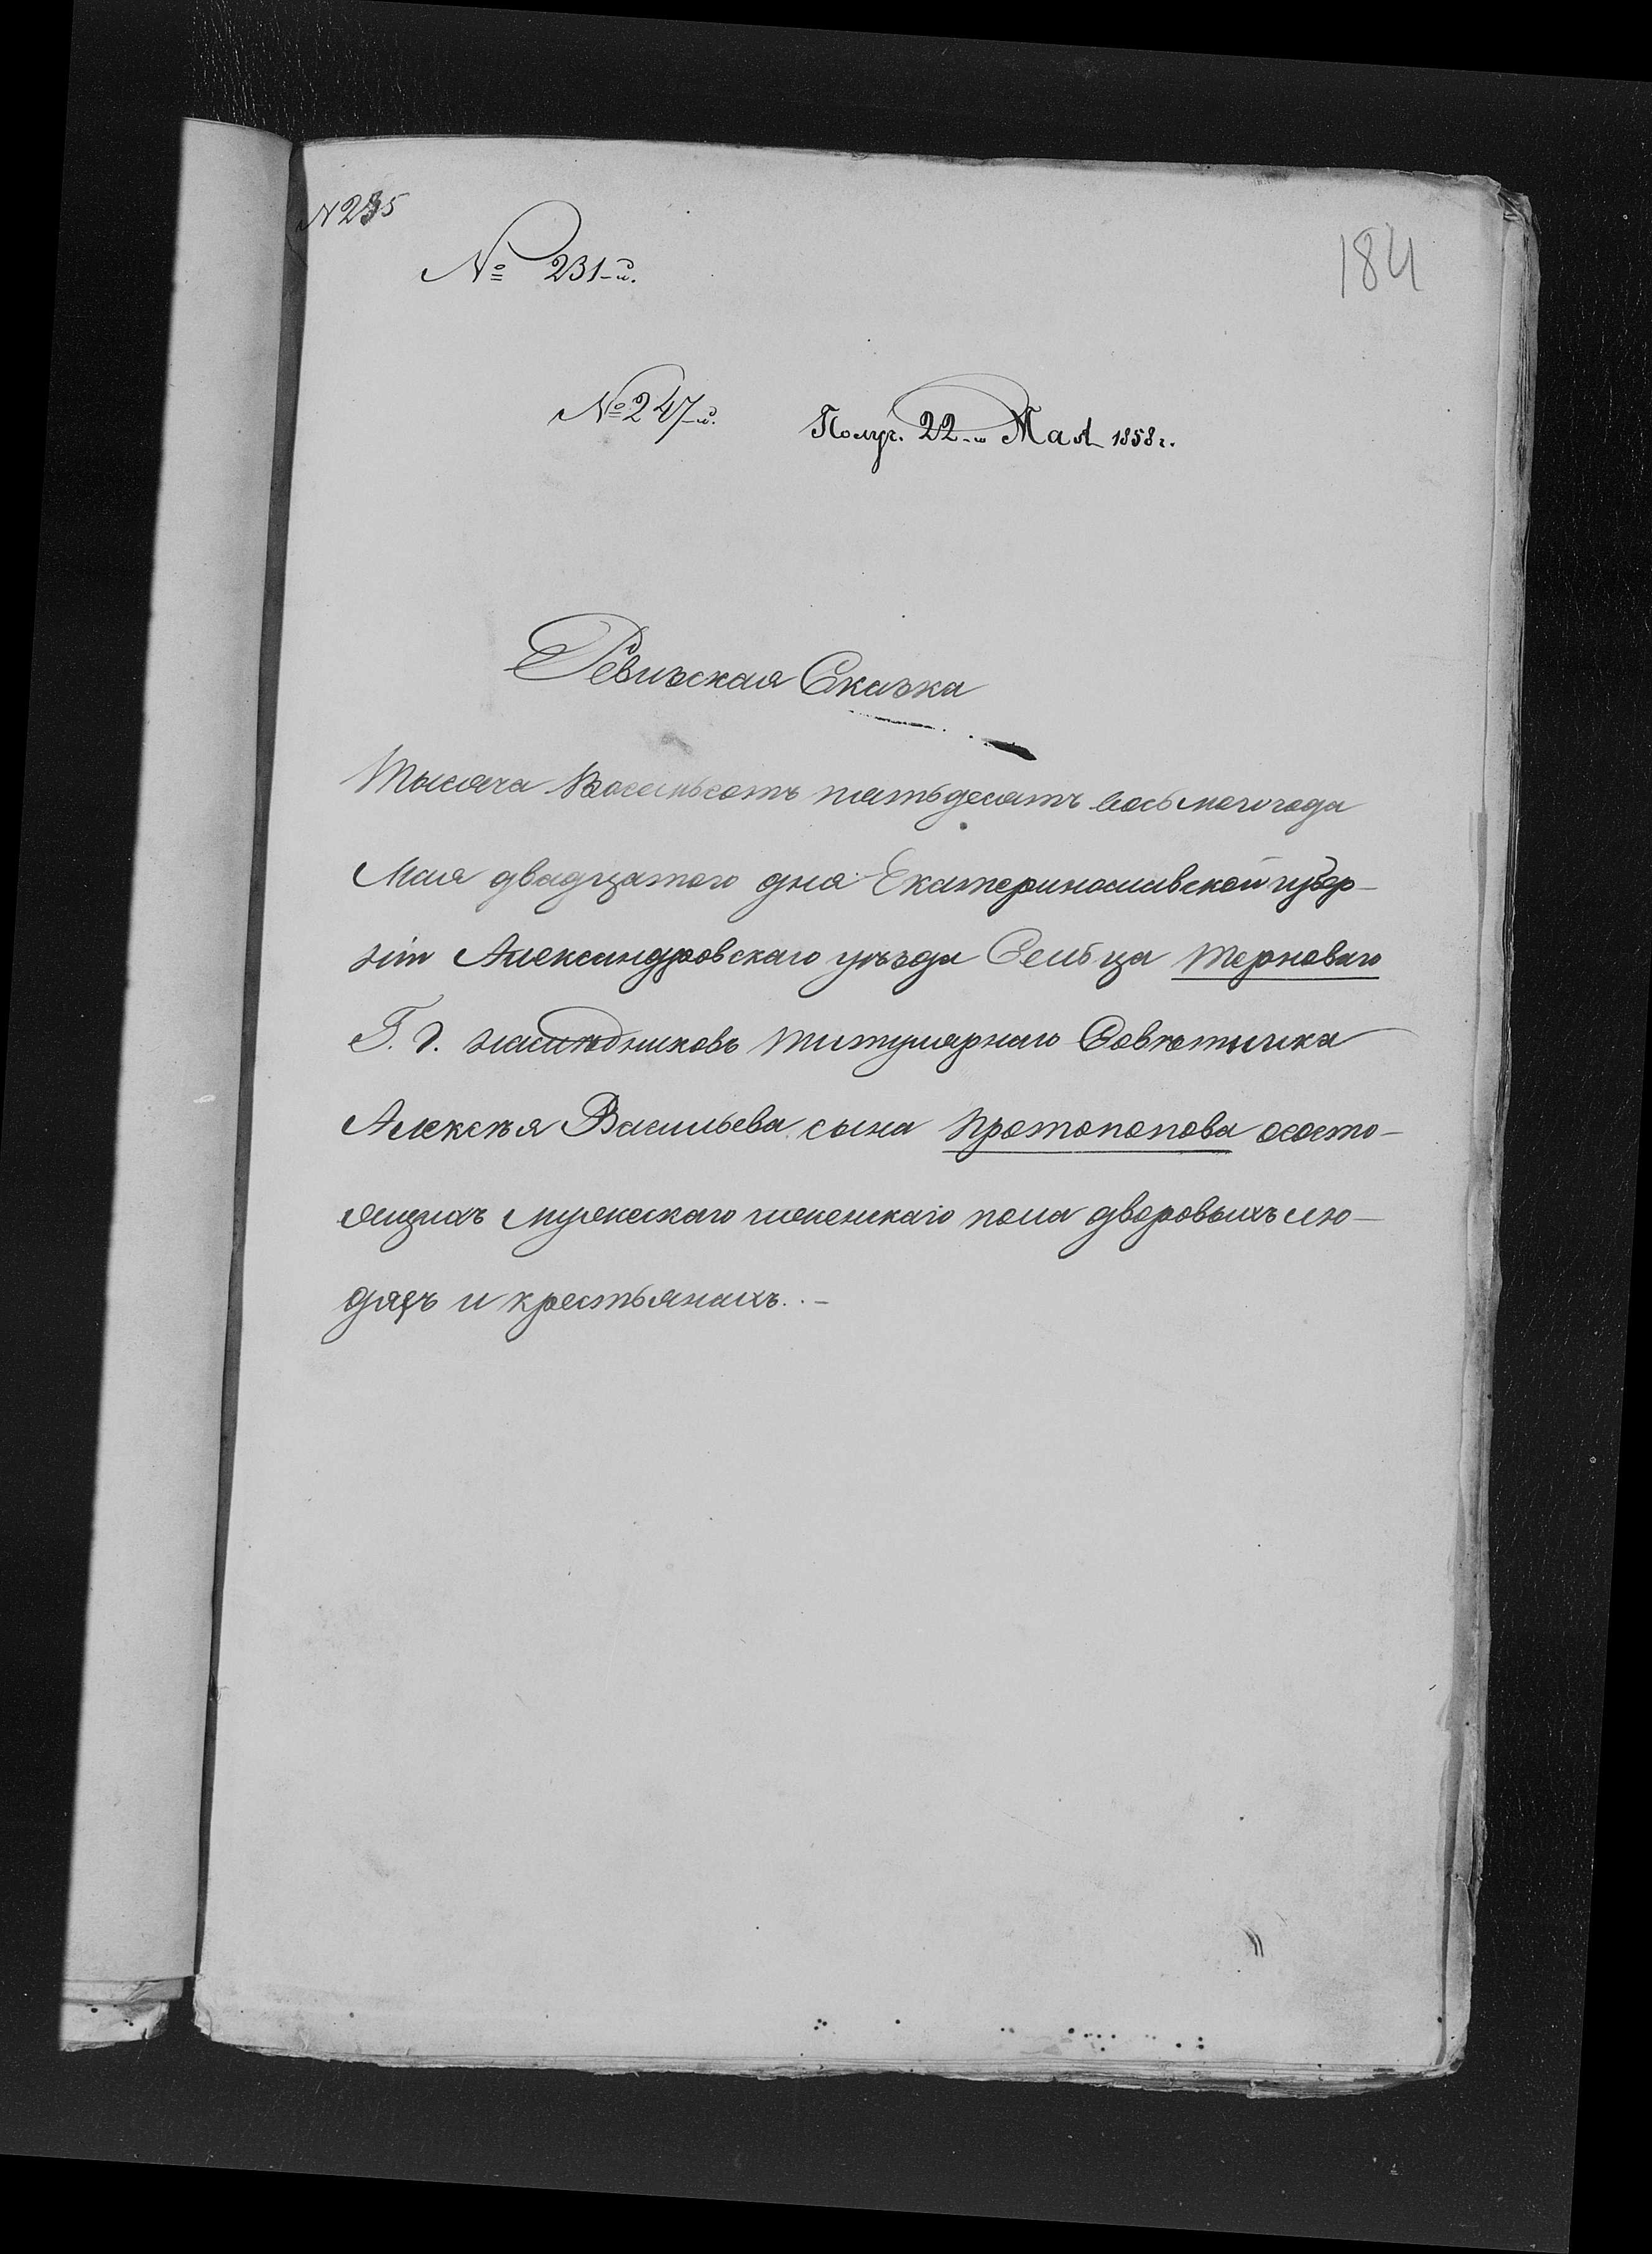 N 235
184
№ 231-й.
№ 247-й. Получ. 22-го Мая 1858 г.
Ревизская Сказка
Тысяча Восемьсотъ пятьдесятъ восьмого года
Мая двадцатого дня Екатеринославской губер-
ніи Александровскаго уѣзда Сельца Терноваго
Г. г. наслѣдниковъ Титулярнаго Совѣтника
Алексѣя Васильева сына Протопопова ососто-
ящихъ мужескаго иженскаго пола дворовыхъ лю-
дяхъ и крестьянахъ. -